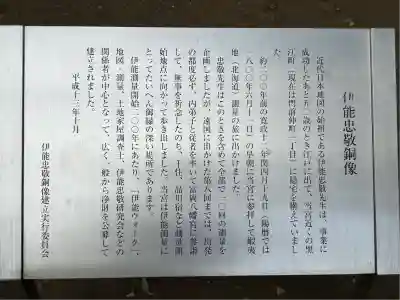 伊能忠敬銅像
近代日本地図の始祖である伊能忠敬先生は、事業に
成功したあと五十歳のとき江戸に出て、当宮近くの黒
江町（現在は門前仲町一丁目）に隠宅を構えていまし
た。
約二〇〇年前の寛政十二年閏四月十九日（陽暦では
一八〇〇年六月十一日）の早朝に当宮に参拝して蝦夷
地（北海道）測量の旅に出かけました。
忠敬先生はこのときを含めて全部で一〇回の測量を
企画しましたが、遠国に出かけた第八回までは、出発
の都度必ず、内弟子と従者を率いて富岡八幡宮に参詣
して、無事を祈念したのち、千住、品川宿など測量開
始地点に向かって歩き出しました。当宮は伊能測量に
とってたいへん御縁の深い場所であります。
伊能測量開始二〇〇年にあたり、「伊能ウォーク」、
地図・測量、土地家屋調査士、伊能忠敬研究会などの
関係者が中心となって、広く一般から浄財を公募して
建立されました。
平成十三年十月
伊能忠敬銅像建立実行委員会